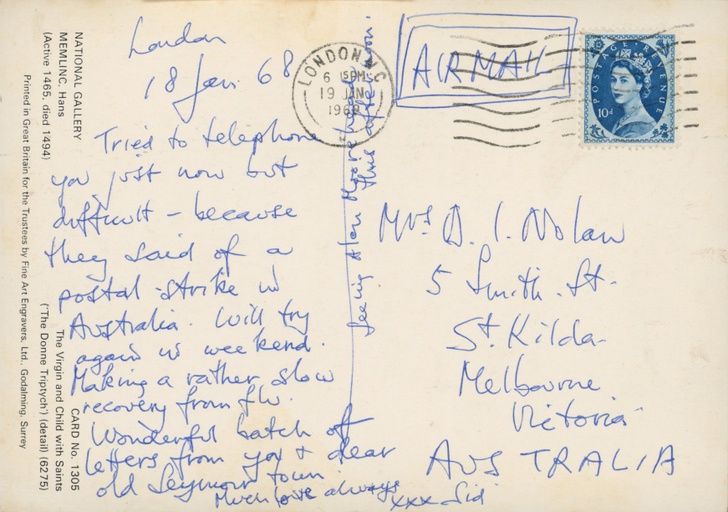 London
18 Jan 68
Tried to telephone
you just now but
difficult - because
they said of a
postal strike in
Australia. Will try
again in weekend.
Making a rather slow
recovery from flu.
Wonderful batch of
letters from you + dear
old Seymour town.
Much love always
xxx Sid
Seeing Alan Moorehead
this afternoon.
AIRMAIL
LONDON W.C.
6 15PM
19 JAN
1968
POSTAGE REVENUE
10d
Mrs D. I. Nolan
5 Smith. St.
St. Kilda
Melbourne
Victoria
AUSTRALIA
NATIONAL GALLERY
MEMLINC, Hans
(Active 1465, died 1494)
CARD No. 1305
The Virgin and Child with Saints
('The Donne Triptych') (detail) (6275)
Printed in Great Britain for the Trustees by Fine Art Engravers, Ltd., Godalming, Surrey